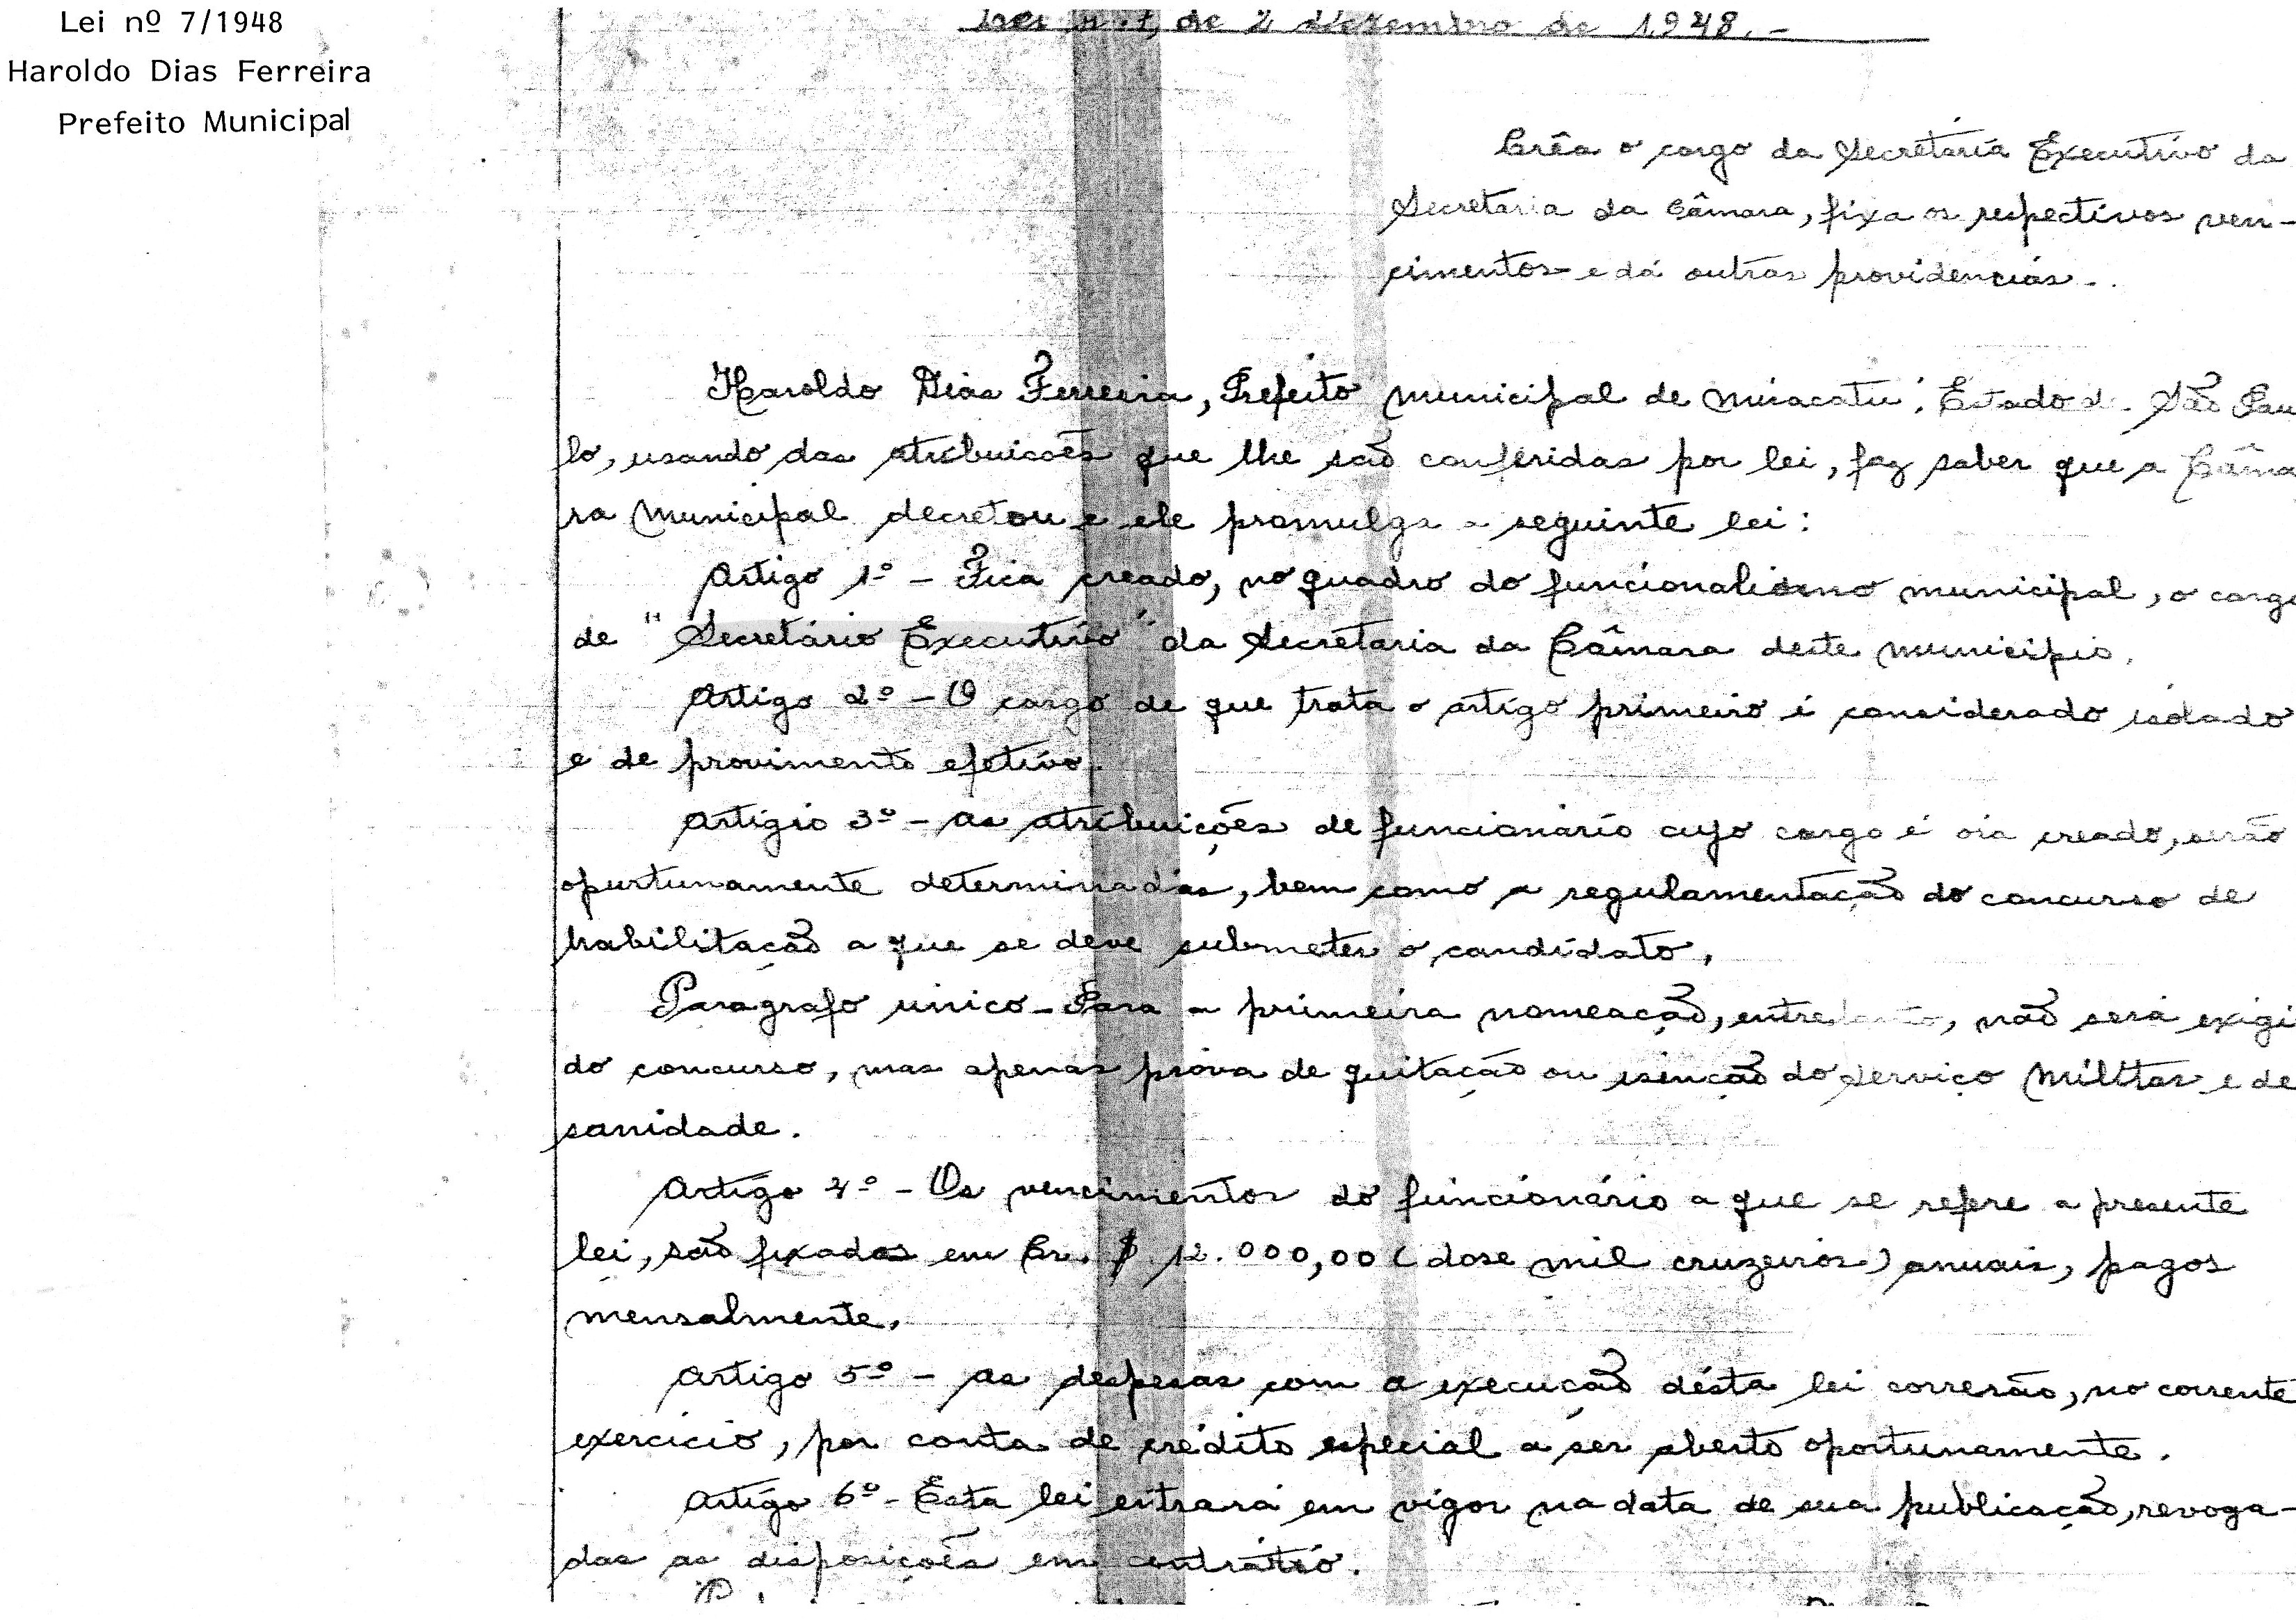 Lei nº 7/1948
Haroldo Dias Ferreira
Prefeito Municipal
Lei n. 7, de 2 dezembro de 1.948. -
Crêa o cargo da Secretaria Executivo da
Secretaria da Câmara, fixa os respectivos ven-
cimentos e dá outras providencias.
Haroldo Dias Ferreira, Prefeito Municipal de Miracatu, Estado de São Pau
lo, usando das atribuições que lhe são conferidas por lei, faz saber que a Câma
ra Municipal decretou e ele promulga a seguinte lei:
Artigo 1º - Fica creado, no quadro do funcionalismo municipal, o cargo
de "Secretário Executivo" da Secretaria da Câmara deste municipio.
Artigo 2º - O cargo de que trata o artigo primeiro é considerado isolado
e de provimento efetivo.
Artigio 3º - As atribuições de funcionário cujo cargo é creado, serão
opurtunamente determinadas, bem como a regulamentação do concurso de
habilitação a que se deve submeter o candidato.
Paragrafo unico - Para a primeira nomeação, entretanto, não será exigi
do concurso, mas apenas prova de quitação ou isenção do Serviço Militar e de
sanidade.
Artigo 4º - Os vencimentos do funcionário a que se refre a presente
lei, são fixados em Cr. $ 12.000,00 (dose mil cruzeiros) anuais, pagos
mensalmente.
Artigo 5º - As despesas com a execução désta lei correrão, no corrente
exercicio, por conta de crédito especial a ser aberto oportunamente.
Artigo 6º - Esta lei entrará em vigor na data de sua publicação, revoga-
das as disposições em contrário.